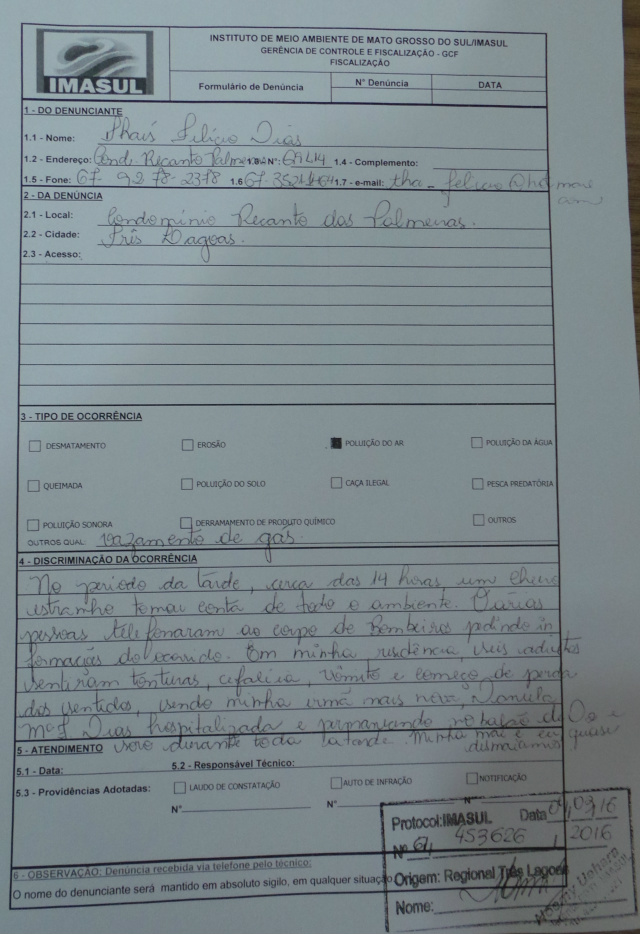 IMASUL
INSTITUTO DE MEIO AMBIENTE DE MATO GROSSO DO SUL/IMASUL
GERÊNCIA DE CONTROLE E FISCALIZAÇÃO - GCF
FISCALIZAÇÃO
Formulário de Denúncia
N° Denúncia
DATA
1 - DO DENUNCIANTE
1.1 - Nome: Thaís Felício Dias
1.2 - Endereço: Cond. Recanto Palmeiras N°: 69414 1.4 - Complemento:
1.5 - Fone: 67-9278-2378 1.6 67-3521 1.7 - e-mail: tha_felicio@hotmail
2 - DA DENÚNCIA
2.1 - Local: Condominio Recanto das Palmeiras.
2.2 - Cidade: Três Lagoas.
2.3 - Acesso:
3 - TIPO DE OCORRÊNCIA
DESMATAMENTO EROSÃO POLUIÇÃO DO AR POLUIÇÃO DA ÁGUA
QUEIMADA POLUIÇÃO DO SOLO CAÇA ILEGAL PESCA PREDATÓRIA
POLUIÇÃO SONORA DERRAMAMENTO DE PRODUTO QUÍMICO OUTROS
OUTROS QUAL: vazamento de gás.
4 - DISCRIMINAÇÃO DA OCORRÊNCIA
No periodo da tarde, cerca das 14 horas um cheiro
estranho tomou conta de todo o ambiente. Várias
pessoas telefonaram ao corpo de Bombeiros pedindo in
formações do ocorrido. Em minha residência, seis adultos
sentiram tonturas, cefaleia, vômito e começo de perda
dos sentidos, sendo minha irmã mais nova, Daniela
Mª F. Dias hospitalizada e permanecendo no balão de O2 e
soro durante toda a tarde. Minha mãe e eu quase
desmaiamos
5 - ATENDIMENTO
5.1 - Data: 5.2 - Responsável Técnico:
5.3 - Providências Adotadas: LAUDO DE CONSTATAÇÃO AUTO DE INFRAÇÃO NOTIFICAÇÃO
N° N° N°
Protocol:IMASUL Data 04/03/16
Nº 61 453626 / 2016
Origem: Regional Três Lagoas
Nome:
6 - OBSERVAÇÃO: Denúncia recebida via telefone pelo técnico:
O nome do denunciante será mantido em absoluto sigilo, em qualquer situação